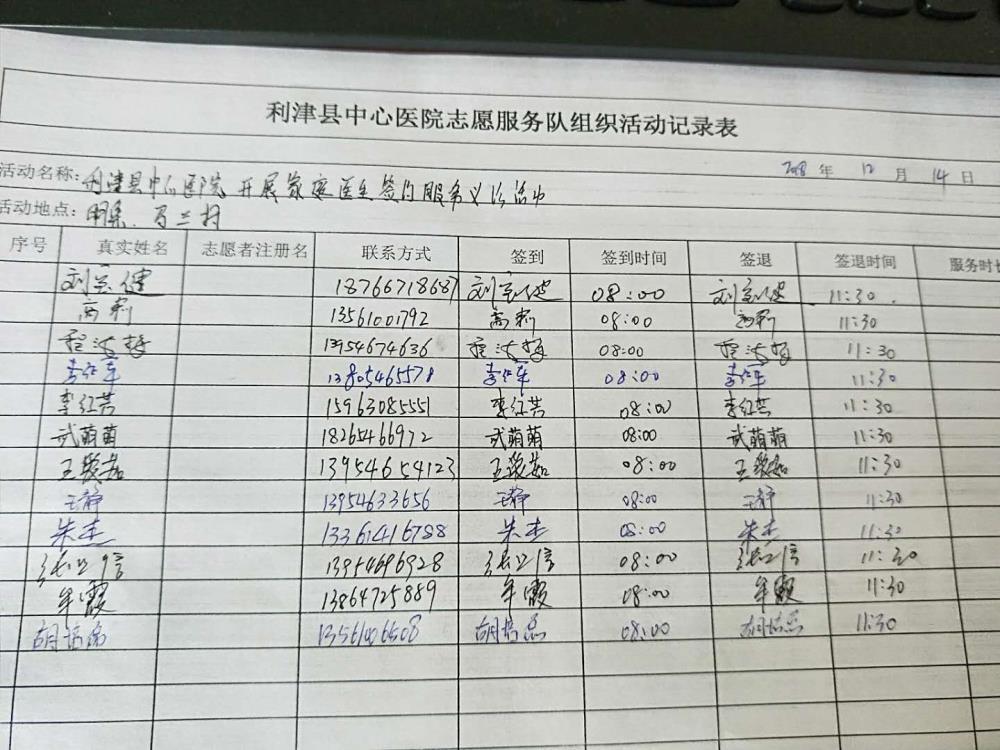 利津县中心医院志愿服务队组织活动记录表
活动名称：利津县中心医院开展家庭医生签约服务义诊活动 2018 年 12 月 14 日
活动地点：明集
序号 真实姓名 志愿者注册名 联系方式 签到 签到时间 签退 签退时间 服务时长
18766718687 08:00 11:30
高莉 13561001792 高莉 08:00 高莉 11:30
13954674636 08:00 11:30
13805465578 08:00 11:30
李红芸 15963085551 李红芸 08:00 李红芸 11:30
武萌萌 18265466972 武萌萌 08:00 武萌萌 11:30
13954654123 08:00 11:30
王静 13954633656 王静 08:00 王静 11:30
朱杰 13361416788 朱杰 08:00 朱杰 11:30
13954696928 08:00 11:30
牟霞 13864725889 牟霞 08:00 牟霞 11:30
08:00 11:30